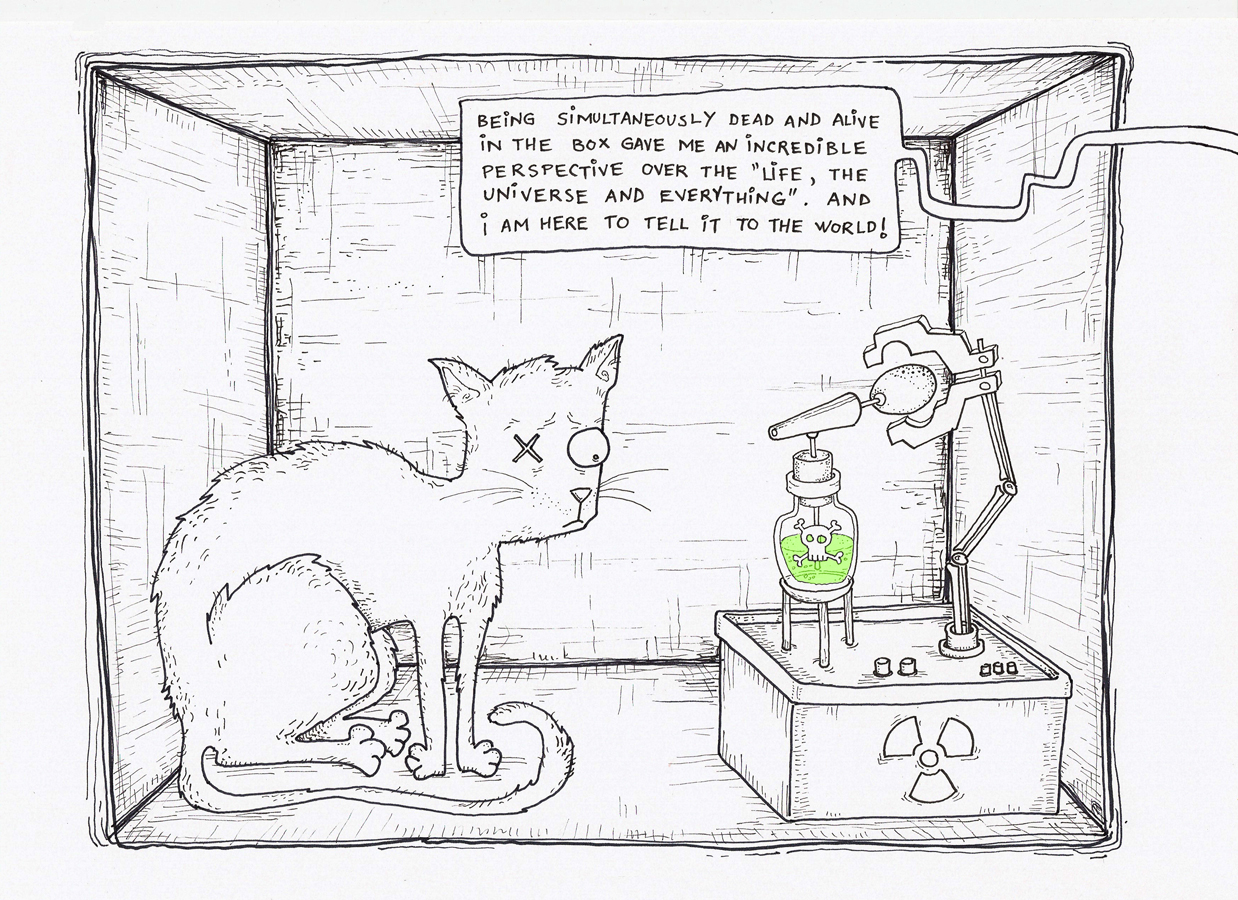 BEING SIMULTANEOUSLY DEAD AND ALIVE
IN THE BOX GAVE ME AN INCREDIBLE
PERSPECTIVE OVER THE "LIFE, THE
UNIVERSE AND EVERYTHING". AND
I AM HERE TO TELL IT TO THE WORLD!